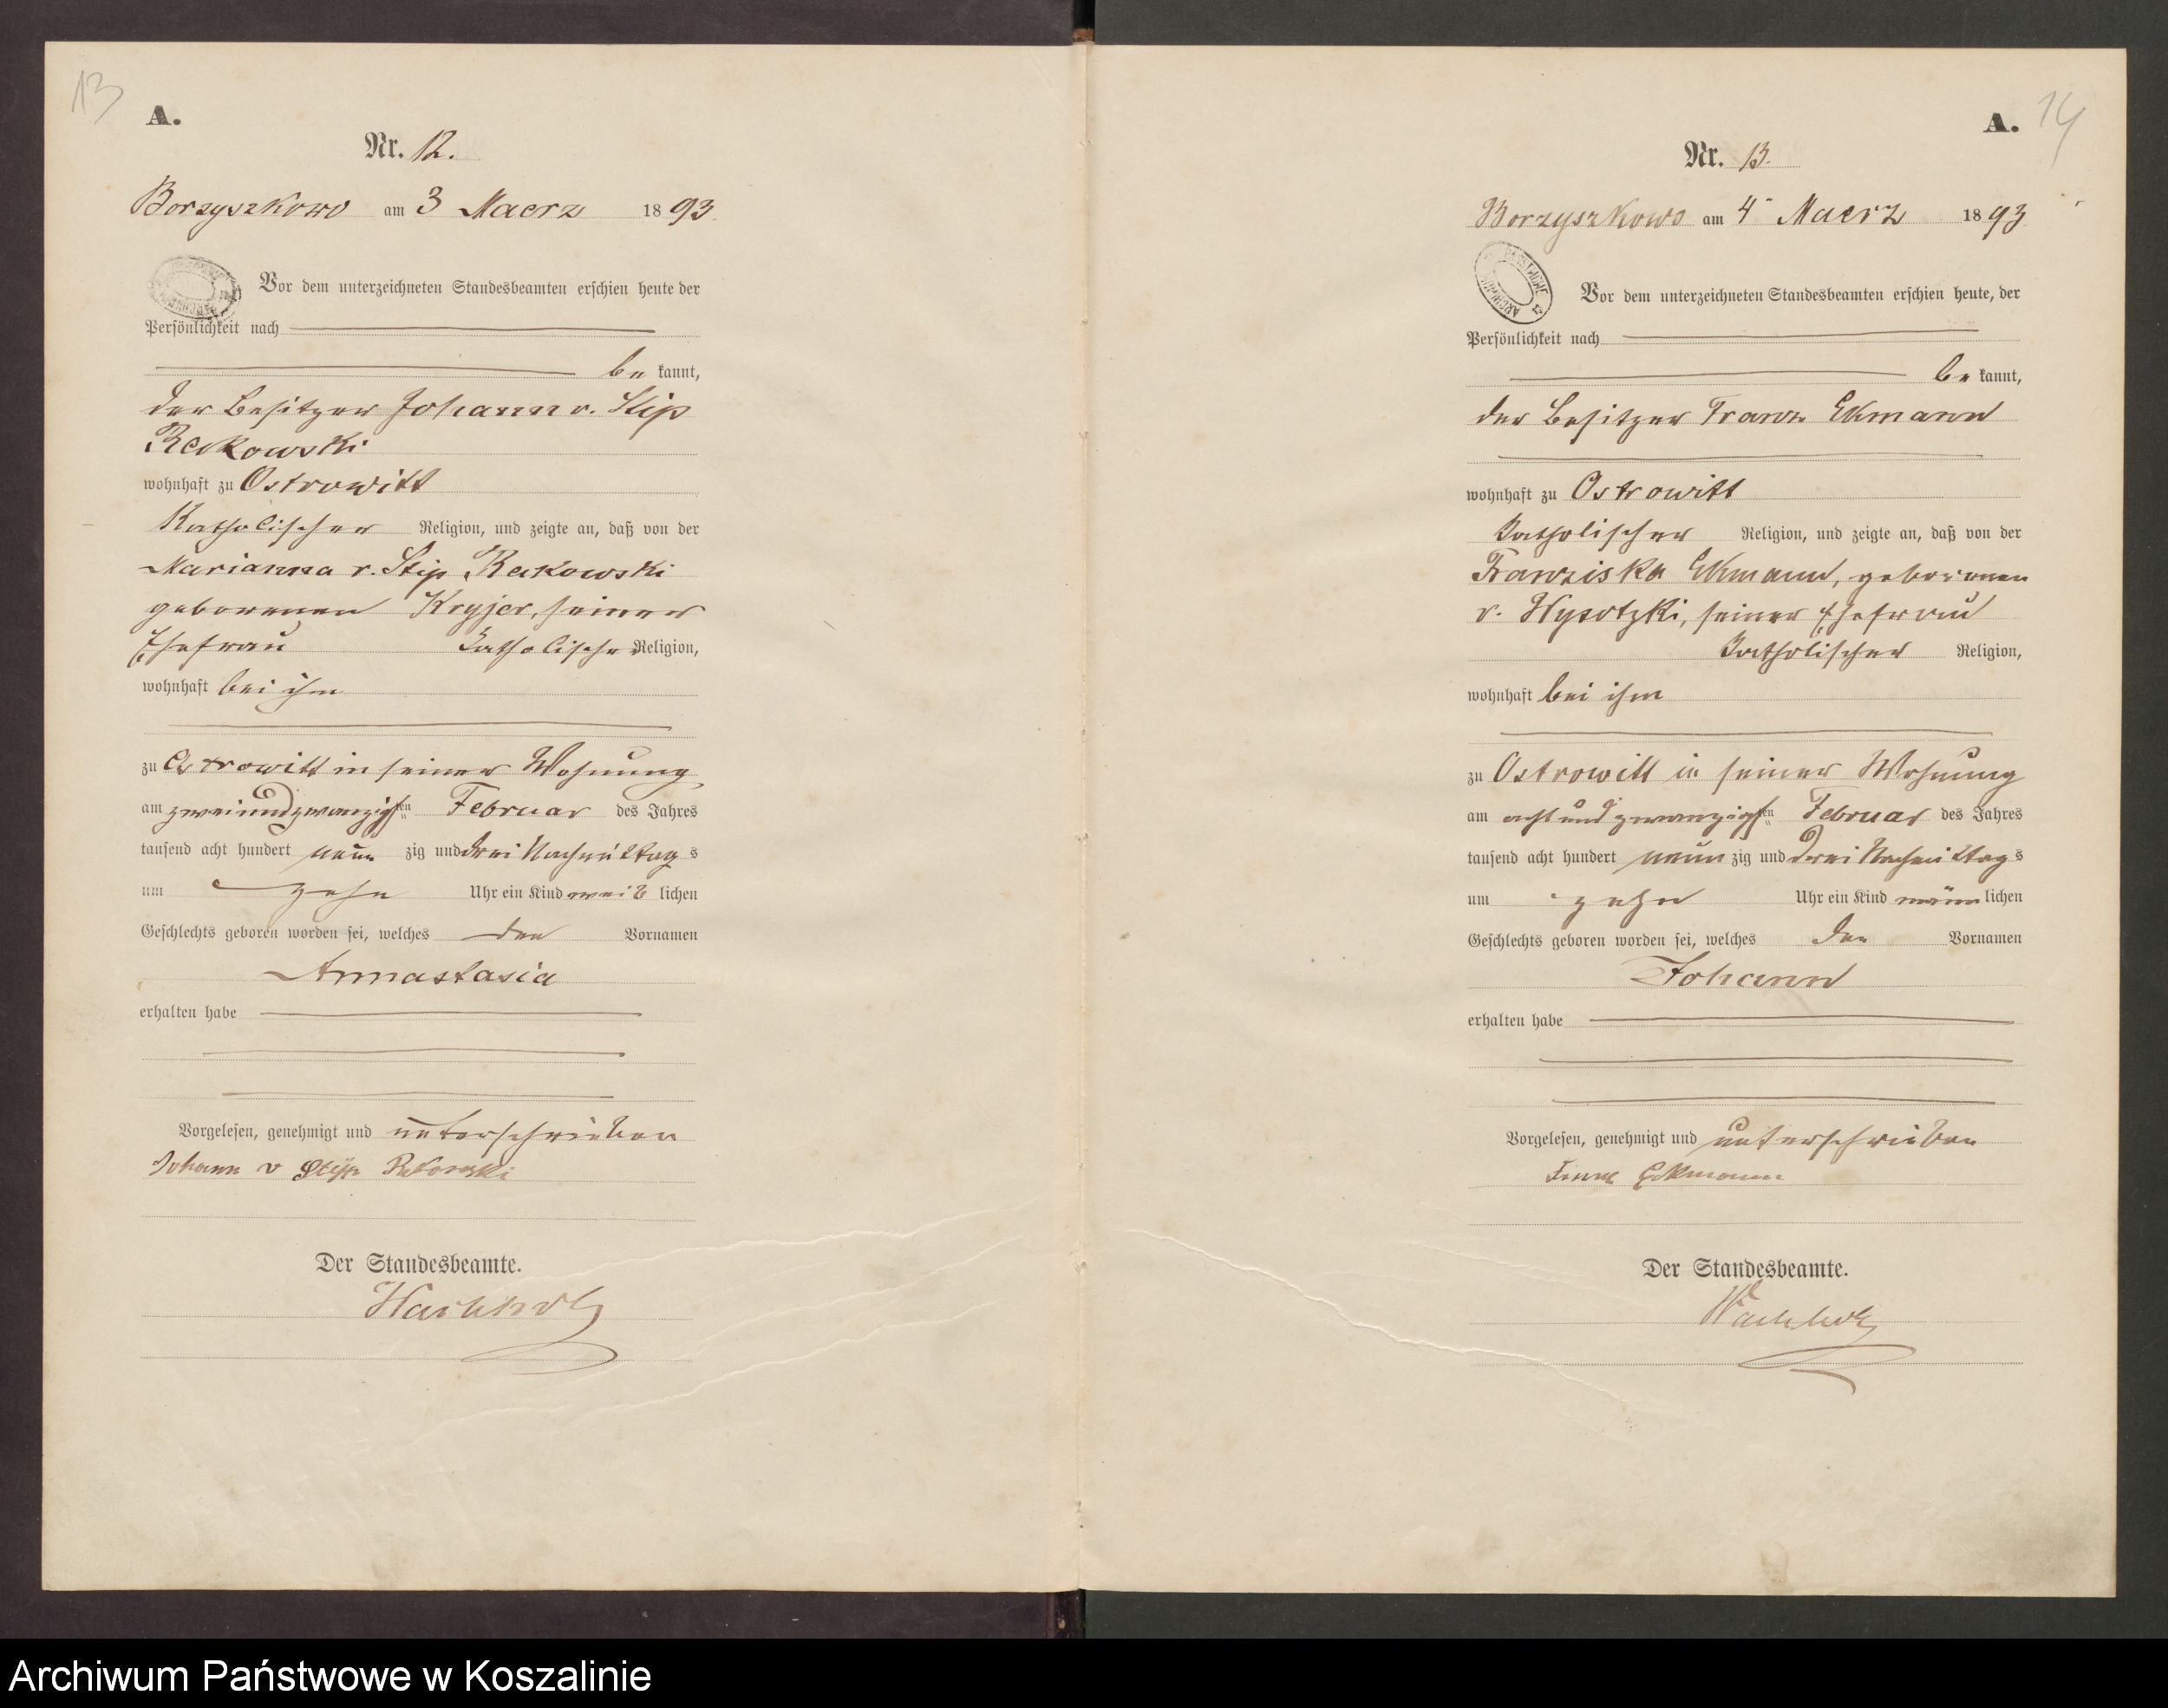 13
A.
Nr. 12.
Borzyszkowo am 3 Maerz 1893
Vor dem unterzeichneten Standesbeamten erschien heute der
Persönlichkeit nach
be kannt,
der Besitzer Johann v. Stip
Rekowski
wohnhaft zu Ostrowitt
Katholischer Religion, und zeigte an, daß von der
Marianna v. Stip Rekowski
geborenen Kryjer, seiner
Ehefrau katholischer Religion,
wohnhaft bei ihm
zu Ostrowitt in seiner Wohnung
am zweiundzwanzigsten Februar des Jahres
tausend acht hundert neun zig und drei Nachmittags
um zehn Uhr ein Kind weib lichen
Geschlechts geboren worden sei, welches den Vornamen
Annastasia
erhalten habe
Vorgelesen, genehmigt und unterschrieben
Johann v Styp Rekowski
Der Standesbeamte.
Wachholz
14
A.
Nr. 13.
Borzyszkowo am 4 Maerz 1893
Vor dem unterzeichneten Standesbeamten erschien heute, der
Persönlichkeit nach
be kannt,
der Besitzer Franz Ekmann
wohnhaft zu Ostrowitt
katholischer Religion, und zeigte an, daß von der
Franziska Ekmann, geborenen
v. Wysotzki, seiner Ehefrau
katholischer Religion,
wohnhaft bei ihm
zu Ostrowitt in seiner Wohnung
am acht und zwanzigsten Februar des Jahres
tausend acht hundert neun zig und drei Nachmittags
um zehn Uhr ein Kind männ lichen
Geschlechts geboren worden sei, welches den Vornamen
Johann
erhalten habe
Vorgelesen, genehmigt und unterschrieben
Franz Eckmann
Der Standesbeamte.
Wachholz
Archiwum Państwowe w Koszalinie